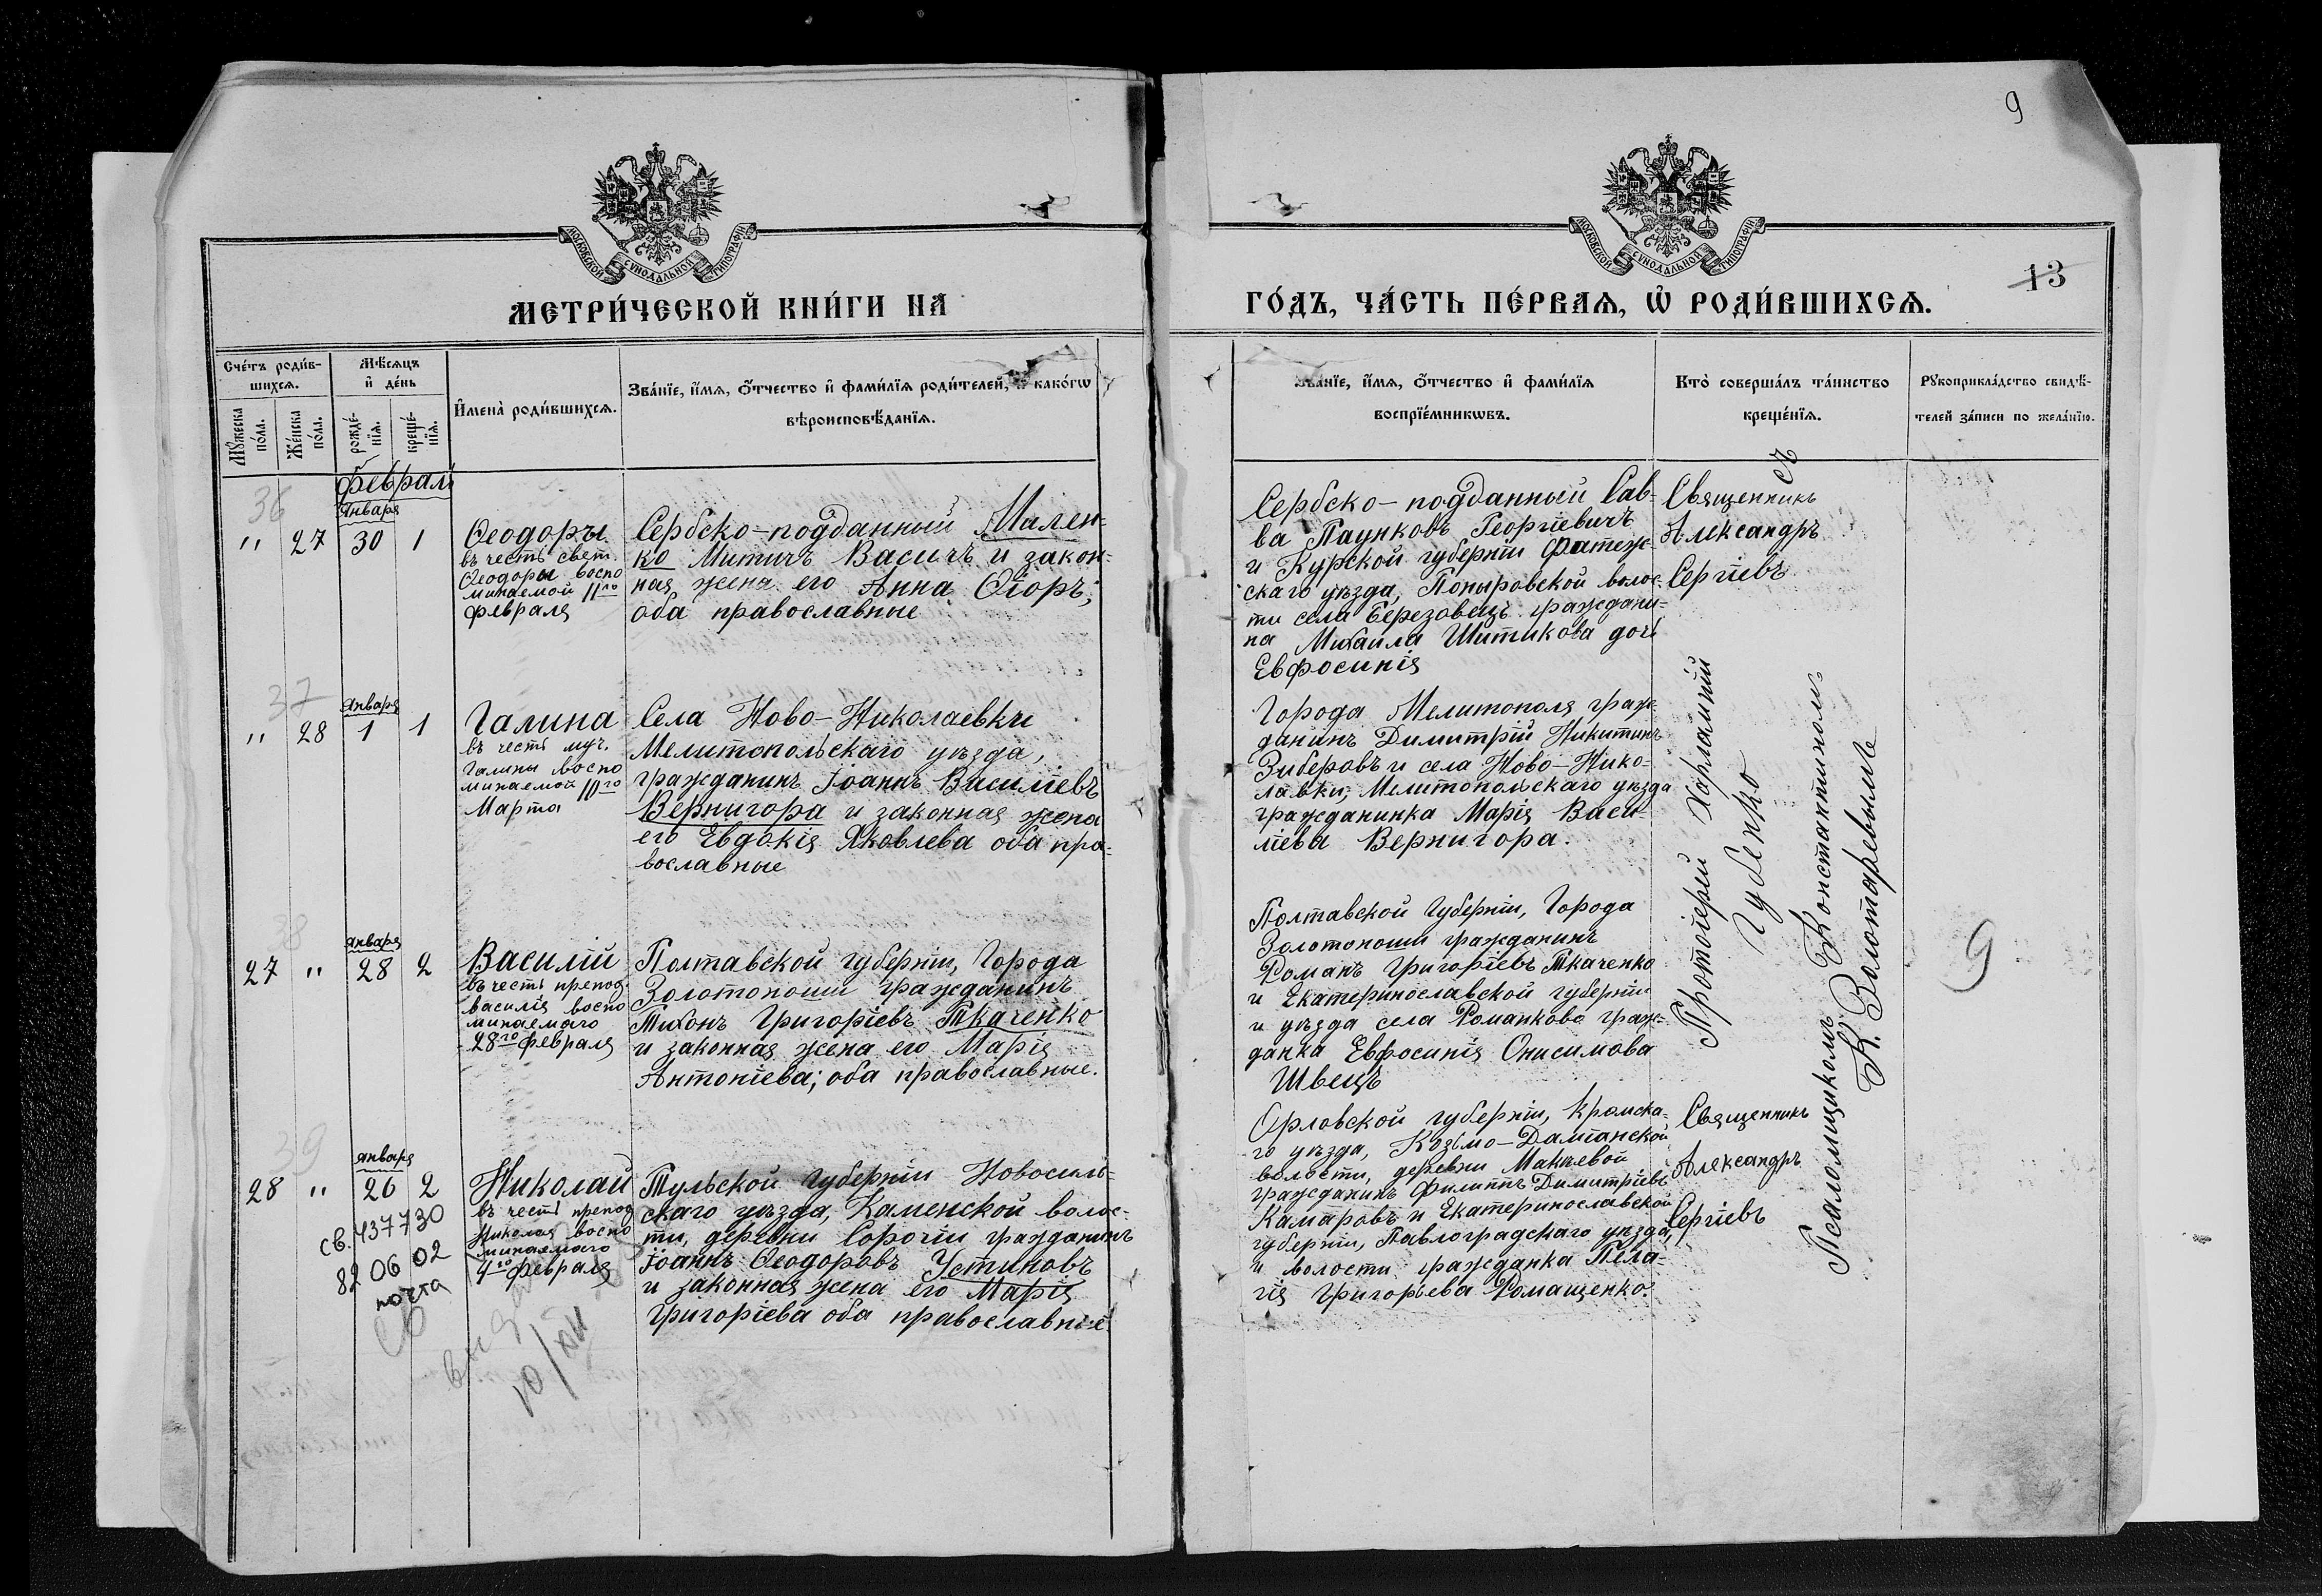 9
МОСКОВСКОЙ СѴНОДАЛЬНОЙ ТИПОГРАФІИ
МОСКОВСКОЙ СѴНОДАЛЬНОЙ ТИПОГРАФІИ
13
МЕТРИ́ЧЕСКОЙ КНИ́ГИ НА
ГО́ДЪ, ЧА́СТЬ ПЕ́РВАЯ, Ѡ҆ РОДИ́ВШИХСЯ.
Сче́тъ роди́в-
шихся.
Мѣ́сяцъ
и҆ де́нь
Мꙋ́жеска
по́ла.
Же́нска
по́ла.
рожде́-
нїя.
креще́-
нїя.
И҆мена̀ роди́вшихся.
Зва́нїе, и҆́мя, ѻ҆́тчество и҆ фами́лїя роди́телей, и҆ како́гѡ
вѣроисповѣ́данїя.
Зва́нїе, и҆́мя, ѻ҆́тчество и҆ фами́лїя
воспрїе́мникѡвъ.
Кто̀ соверша́лъ та́инство
креще́нїя.
Рꙋкоприкла́дство свидѣ́-
телей за́писи по жела́нїю.
Февраль
36
Января
" 27 30 1
Ѳеодоры
въ честь свет.
Ѳеодоры воспо
минаемой 11го
февраля
Сербско-подданный Милен-
ко Митичъ Васичъ и закон-
ная жена его Анна Ѳіоръ;
оба православные
Сербско-подданный Сав-
ва Паунковъ Георгіевичъ
и Курской губерніи Фатеж-
скаго уѣзда, Поныровской волос-
ти села Березовецъ граждани-
на Михаила Шитикова дочь
Евфосинія
Священникъ
Александръ
Сергіевъ
съ
37
Января
" 28 1 1
Галина
въ честь муч.
Галины воспо
минаемой 10го
Марта
Села Ново-Николаевки
Мелитопольскаго уѣзда,
гражданинъ Іоаннъ Василіевъ
Вернигора и законная жена
его Евдокія Яковлева оба пра-
вославные
Города Мелитополя граж-
данинъ Димитрій Никитинъ
Зиберовъ и села Ново-Нико-
лаевки, Мелитопольскаго уѣзда
гражданинка Марія Васи-
ліева Вернигора.
Протоіерей Харлампій
Губенко
Псаломщикомъ Константиномъ
К. Золотаревымъ
38
Января
27 " 28 2
Василій
въ честь препод.
Василія воспо
минаемаго
28го февраля
Полтавской губерніи, Города
Золотоноши гражданинъ
Тихонъ Григоріевъ Ткаченко
и законная жена его Марія
Антоніева; оба православные.
Полтавской Губерніи, Города
Золотоноши гражданинъ
Романъ Григоріевъ Ткаченко
и Екатеринославской губерніи
и уѣзда села Романково граж-
данка Евфосинія Онисимова
Швецъ
9
39
Января
28 " 26 2
Николай
въ честь препод
Николая воспо
минаемаго
4го февраля
Тульской Губерніи Новосиль-
скаго уѣзда, Каменской волос-
ти, деревни Сорочіи гражданинъ
Іоаннъ Ѳеодоровъ Устиновъ
и законная жена его Марія
Григоріева оба православные
Орловской губерніи, Кромска-
го уѣзда, Козьмо-Даміанской
волости, деревни Макѣевой
гражданинъ Филиппъ Димитріевъ
Камаровъ и Екатеринославской
губерніи, Павлоградскаго уѣзда,
и волости гражданка Пела-
гія Григорьева Ромащенко.
Священникъ
Александръ
Сергіевъ
св. 437730
82 06 02
почта
10/XII